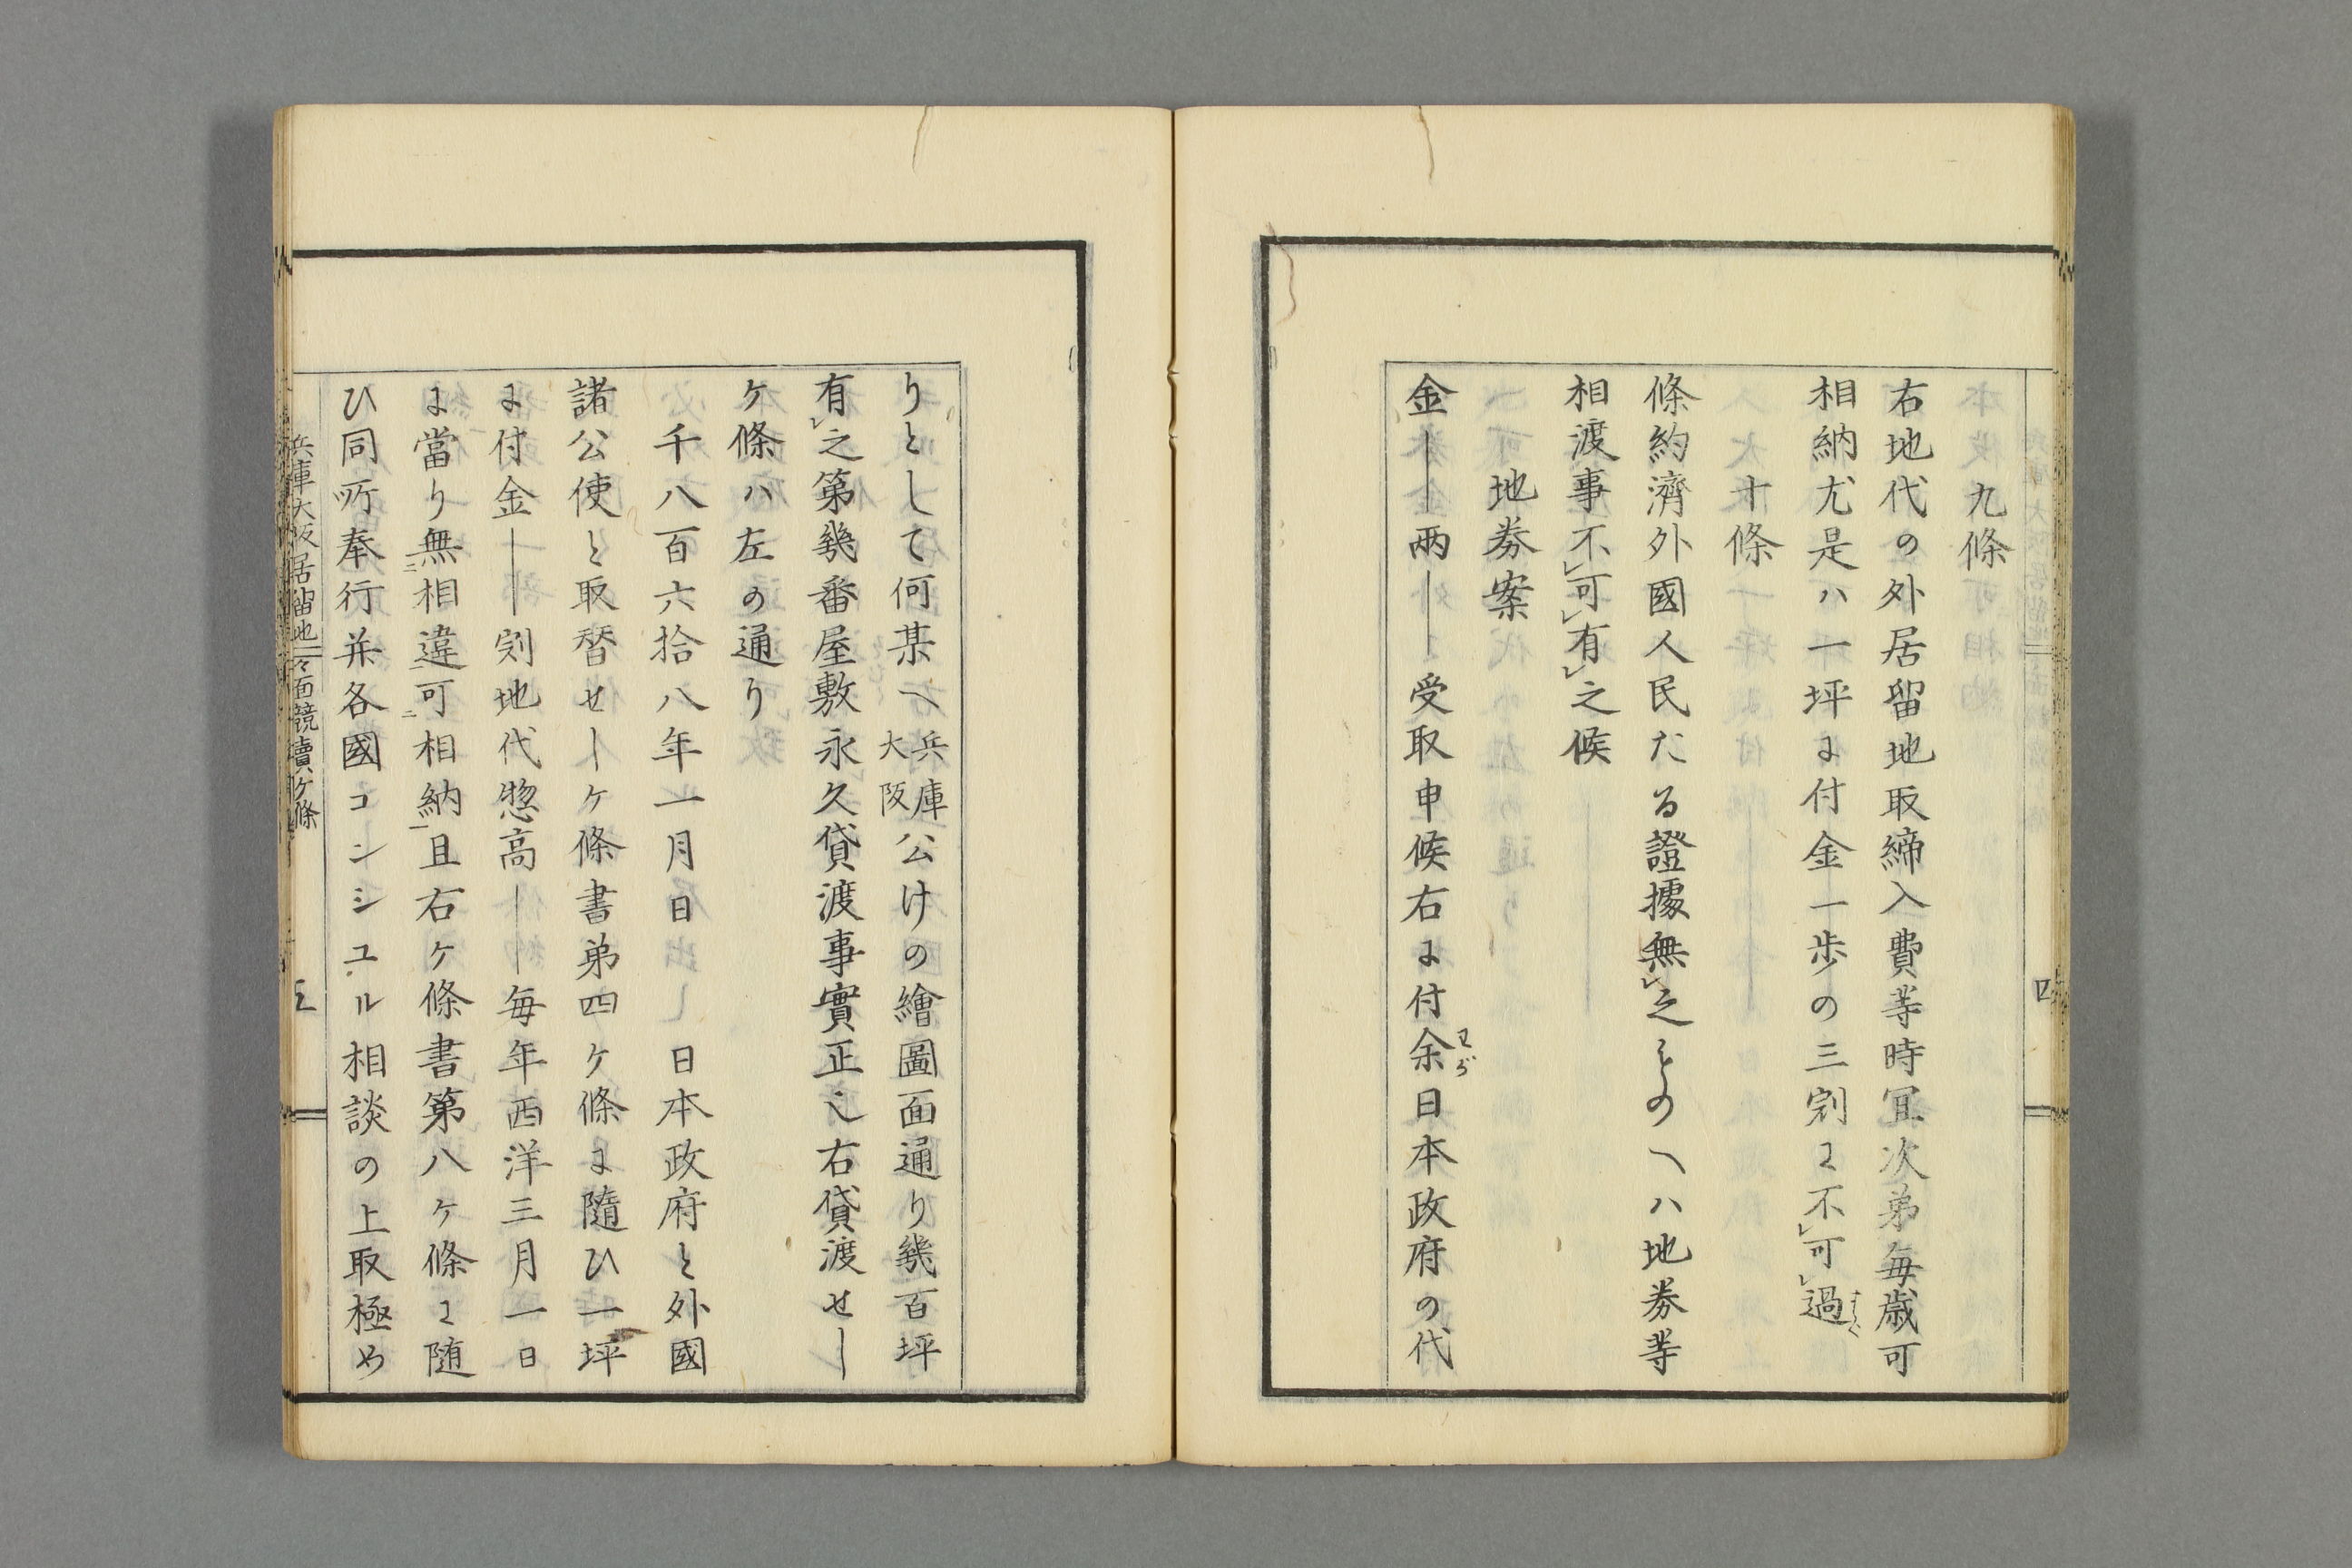 九條
右地代の外居留地取締入費等時冝次弟毎歳可
相納尤是ハ一坪に付金一歩の三割に不レ可レ過すぐ
十條
條約濟外國人民たる證據無レ之ものへハ地券等
相渡事不レ可レ有レ之候
地券案
金――兩――受取申候右に付余日本政府の代
りとして何某へ兵庫大阪公けの繪圖面通り幾百坪
有レ之第幾番屋敷永久貸渡事實正也右貸渡せし
ケ條ハ左の通り
千八百六拾八年一月日日本政府と外國
諸公使と取替せしケ條書弟四ケ條に隨ひ一坪
に付金――則地代惣高――毎年西洋三月一日
に當り無二相違一可二相納一且右ケ條書第八ケ條に随
ひ同所奉行并各國コンシユル相談の上取極め
兵庫大阪居留地々面競賣ケ條
五
四